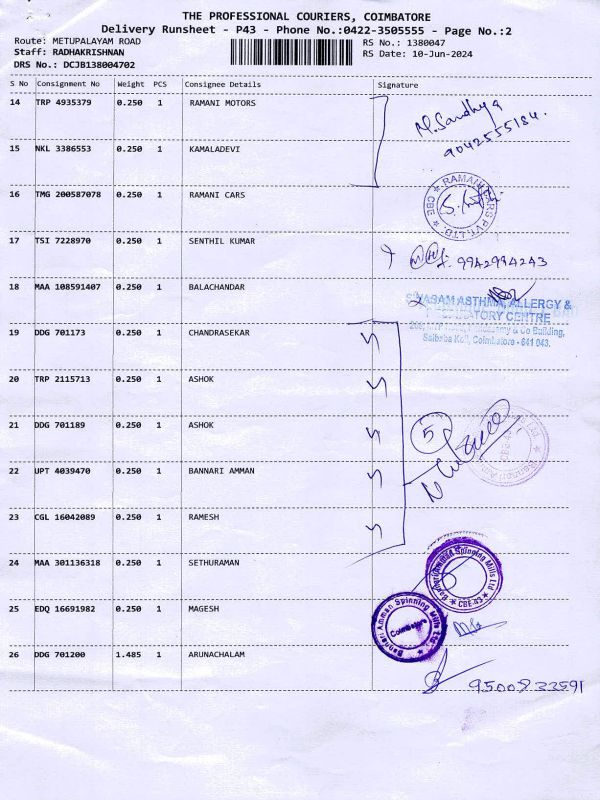 THE PROFESSIONAL COURIERS, COIMBATORE
Delivery Runsheet - P43 - Phone No.:0422-3505555 - Page No.:2
Route: METUPALAYAM ROAD
Staff: RADHAKRISHNAN
DRS No.: DCJB138004702
RS No.: 1380047
RS Date: 10-Jun-2024
S No Consignment No Weight PCS Consignee Details Signature
14 TRP 4935379 0.250 1 RAMANI MOTORS
M. Sandhya
9042555184.
15 NKL 3386553 0.250 1 KAMALADEVI
16 TMG 200587078 0.250 1 RAMANI CARS
RAMANI CARS PVT. LTD. CBE
17 TSI 7228970 0.250 1 SENTHIL KUMAR
9942994243
18 MAA 108591407 0.250 1 BALACHANDAR
SWASAM ASTHMA, ALLERGY &
CENTRE
& Co Building,
Saibaba Koil, Coimbatore - 641 043.
19 DDG 701173 0.250 1 CHANDRASEKAR
20 TRP 2115713 0.250 1 ASHOK
21 DDG 701189 0.250 1 ASHOK
5
22 UPT 4039470 0.250 1 BANNARI AMMAN
23 CGL 16042089 0.250 1 RAMESH
24 MAA 301136318 0.250 1 SETHURAMAN
Bannari Amman Spinning Mills Ltd CBE-43
25 EDQ 16691982 0.250 1 MAGESH
Bannari Amman Spinning Mills Ltd. Coimbatore
26 DDG 701200 1.485 1 ARUNACHALAM